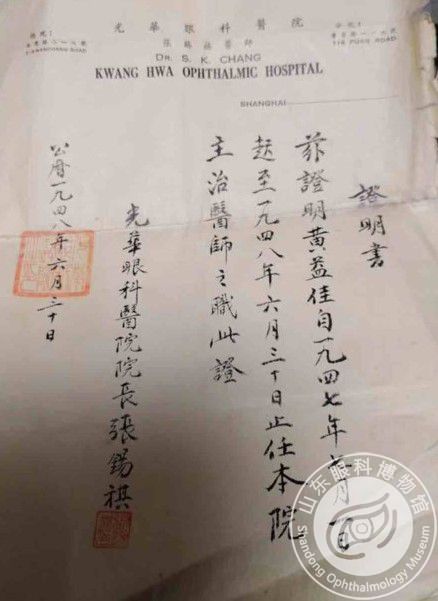 光華眼科醫院
張錫祺醫師
DR. S. K. CHANG
KWANG HWA OPHTHALMIC HOSPITAL
116 PUAN ROAD
SHANGHAI
證明書
茲證明黃益佳自一九四七年月一日
起至一九四八年六月三十日止任本院
主治醫師之職此證
光華眼科醫院院長張錫祺
公曆一九四八年六月三十日
山东眼科博物馆
Shandong Ophthalmology Museum